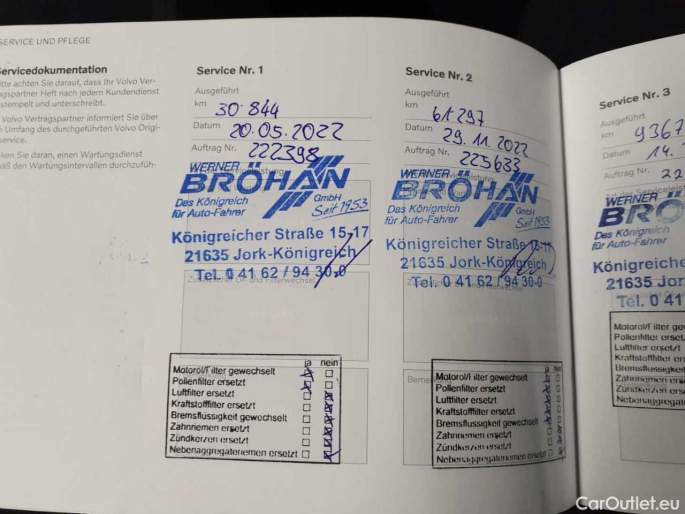 SERVICE UND PFLEGE
Servicedokumentation
Bitte achten Sie darauf, dass Ihr Volvo Ver-
tragspartner Heft nach jedem Kundendienst
stempelt und unterschreibt.
Volvo Vertragspartner informiert Sie über
Umfang des durchgeführten Volvo Origi-
service.
ken Sie daran, einen Wartungsdienst
den Wartungsintervallen durchzufüh-
Service Nr. 1
Ausgeführt
km 30.844
Datum 20.05.2022
Auftrag Nr. 222398
WERNER
BRÖHAN
GmbH
Das Königreich
für Auto-Fahrer
Seit 1953
Königreicher Straße 15-17
21635 Jork-Königreich
Tel. 0 41 62 / 94 30-0
ja nein
Motoröl/Filter gewechselt
Pollenfilter ersetzt
Luftfilter ersetzt
Kraftstofffilter ersetzt
Bremsflussigkeit gewochselt
Zahnriemen ersetzt
Zündkerzen ersetzt
Nebenaggregateriemen ersetzt
Service Nr. 2
Ausgeführt
km 61.297
Datum 29.11.2022
Auftrag Nr. 225633
WERNER
BRÖHAN
GmbH
Das Königreich
für Auto-Fahrer
Seit 1953
Königreicher Straße 15-17
21635 Jork-Königreich
Tel. 0 41 62 / 94 30-0
ja
Motoröl/Filter gewechselt
Pollenfilter ersetzt
Luftfilter ersetzt
Kraftstofffilter ersetzt
Bremsflussigkeit gewechselt
Zahnriemen ersetzt
Zündkerzen ersetzt
Nebenaggregateriemen ersetzt
Service Nr. 3
Ausgeführt
km 9367
Datum 14.
Auftrag Nr. 22
WERNER
BRÖH
Das Königreich
für Auto-Fahrer
Königreicher
21635 Jork
Tel. 0 41
Motoröl/Filter gew
Pollenfilter ersetz
Luftfilter ersetzt
Kraftstofffilter ers
Bremsflussigkeit
Zahnriemen ers
Zündkerzen ers
Nebenaggregate
CarOutlet.eu